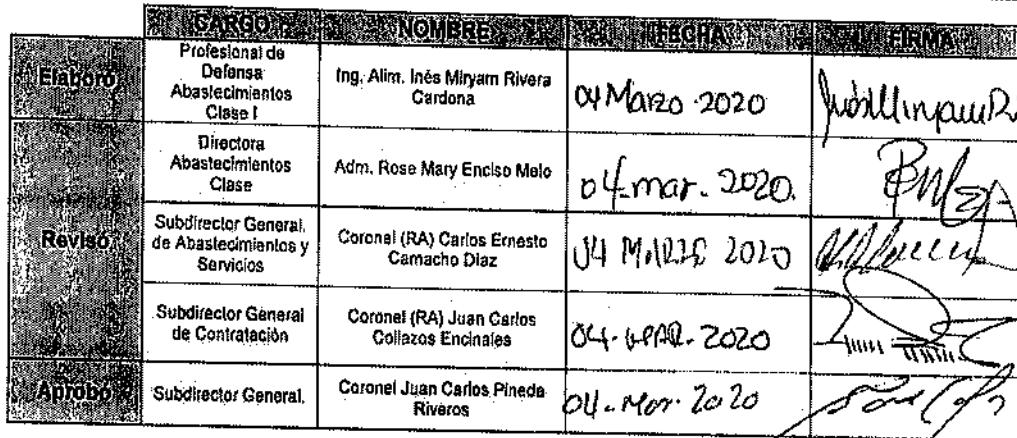 CARGO NOMBRE FECHA FIRMA
Elaboró
Profesional de
Defensa
Abastecimientos
Clase I
Ing. Alim. Inés Miryam Rivera
Cardona
04 Marzo 2020
Revisó
Directora
Abastecimientos
Clase
Adm. Rose Mary Enciso Melo
04-mar. 2020.
Subdirector General.
de Abastecimientos y
Servicios
Coronel (RA) Carlos Ernesto
Camacho Diaz
04 MARZO 2020
Subdirector General
de Contratación
Coronel (RA) Juan Carlos
Collazos Encinales
04-MAR-2020
Aprobó
Subdirector General.
Coronel Juan Carlos Pineda
Riveros
04-Mar-2020